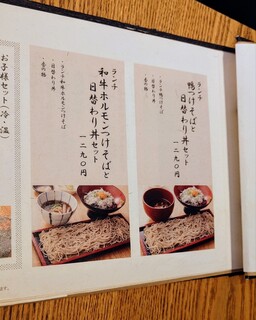 ランチ
鴨つけそばと
日替わり丼セット
一二九〇円
・ランチ鴨つけそば
・日替わり丼
ランチ
和牛ホルモンつけそばと
日替わり丼セット
一二九〇円
・ランチ和牛ホルモンつけそば
・日替わり丼
お子様セット(冷・温)